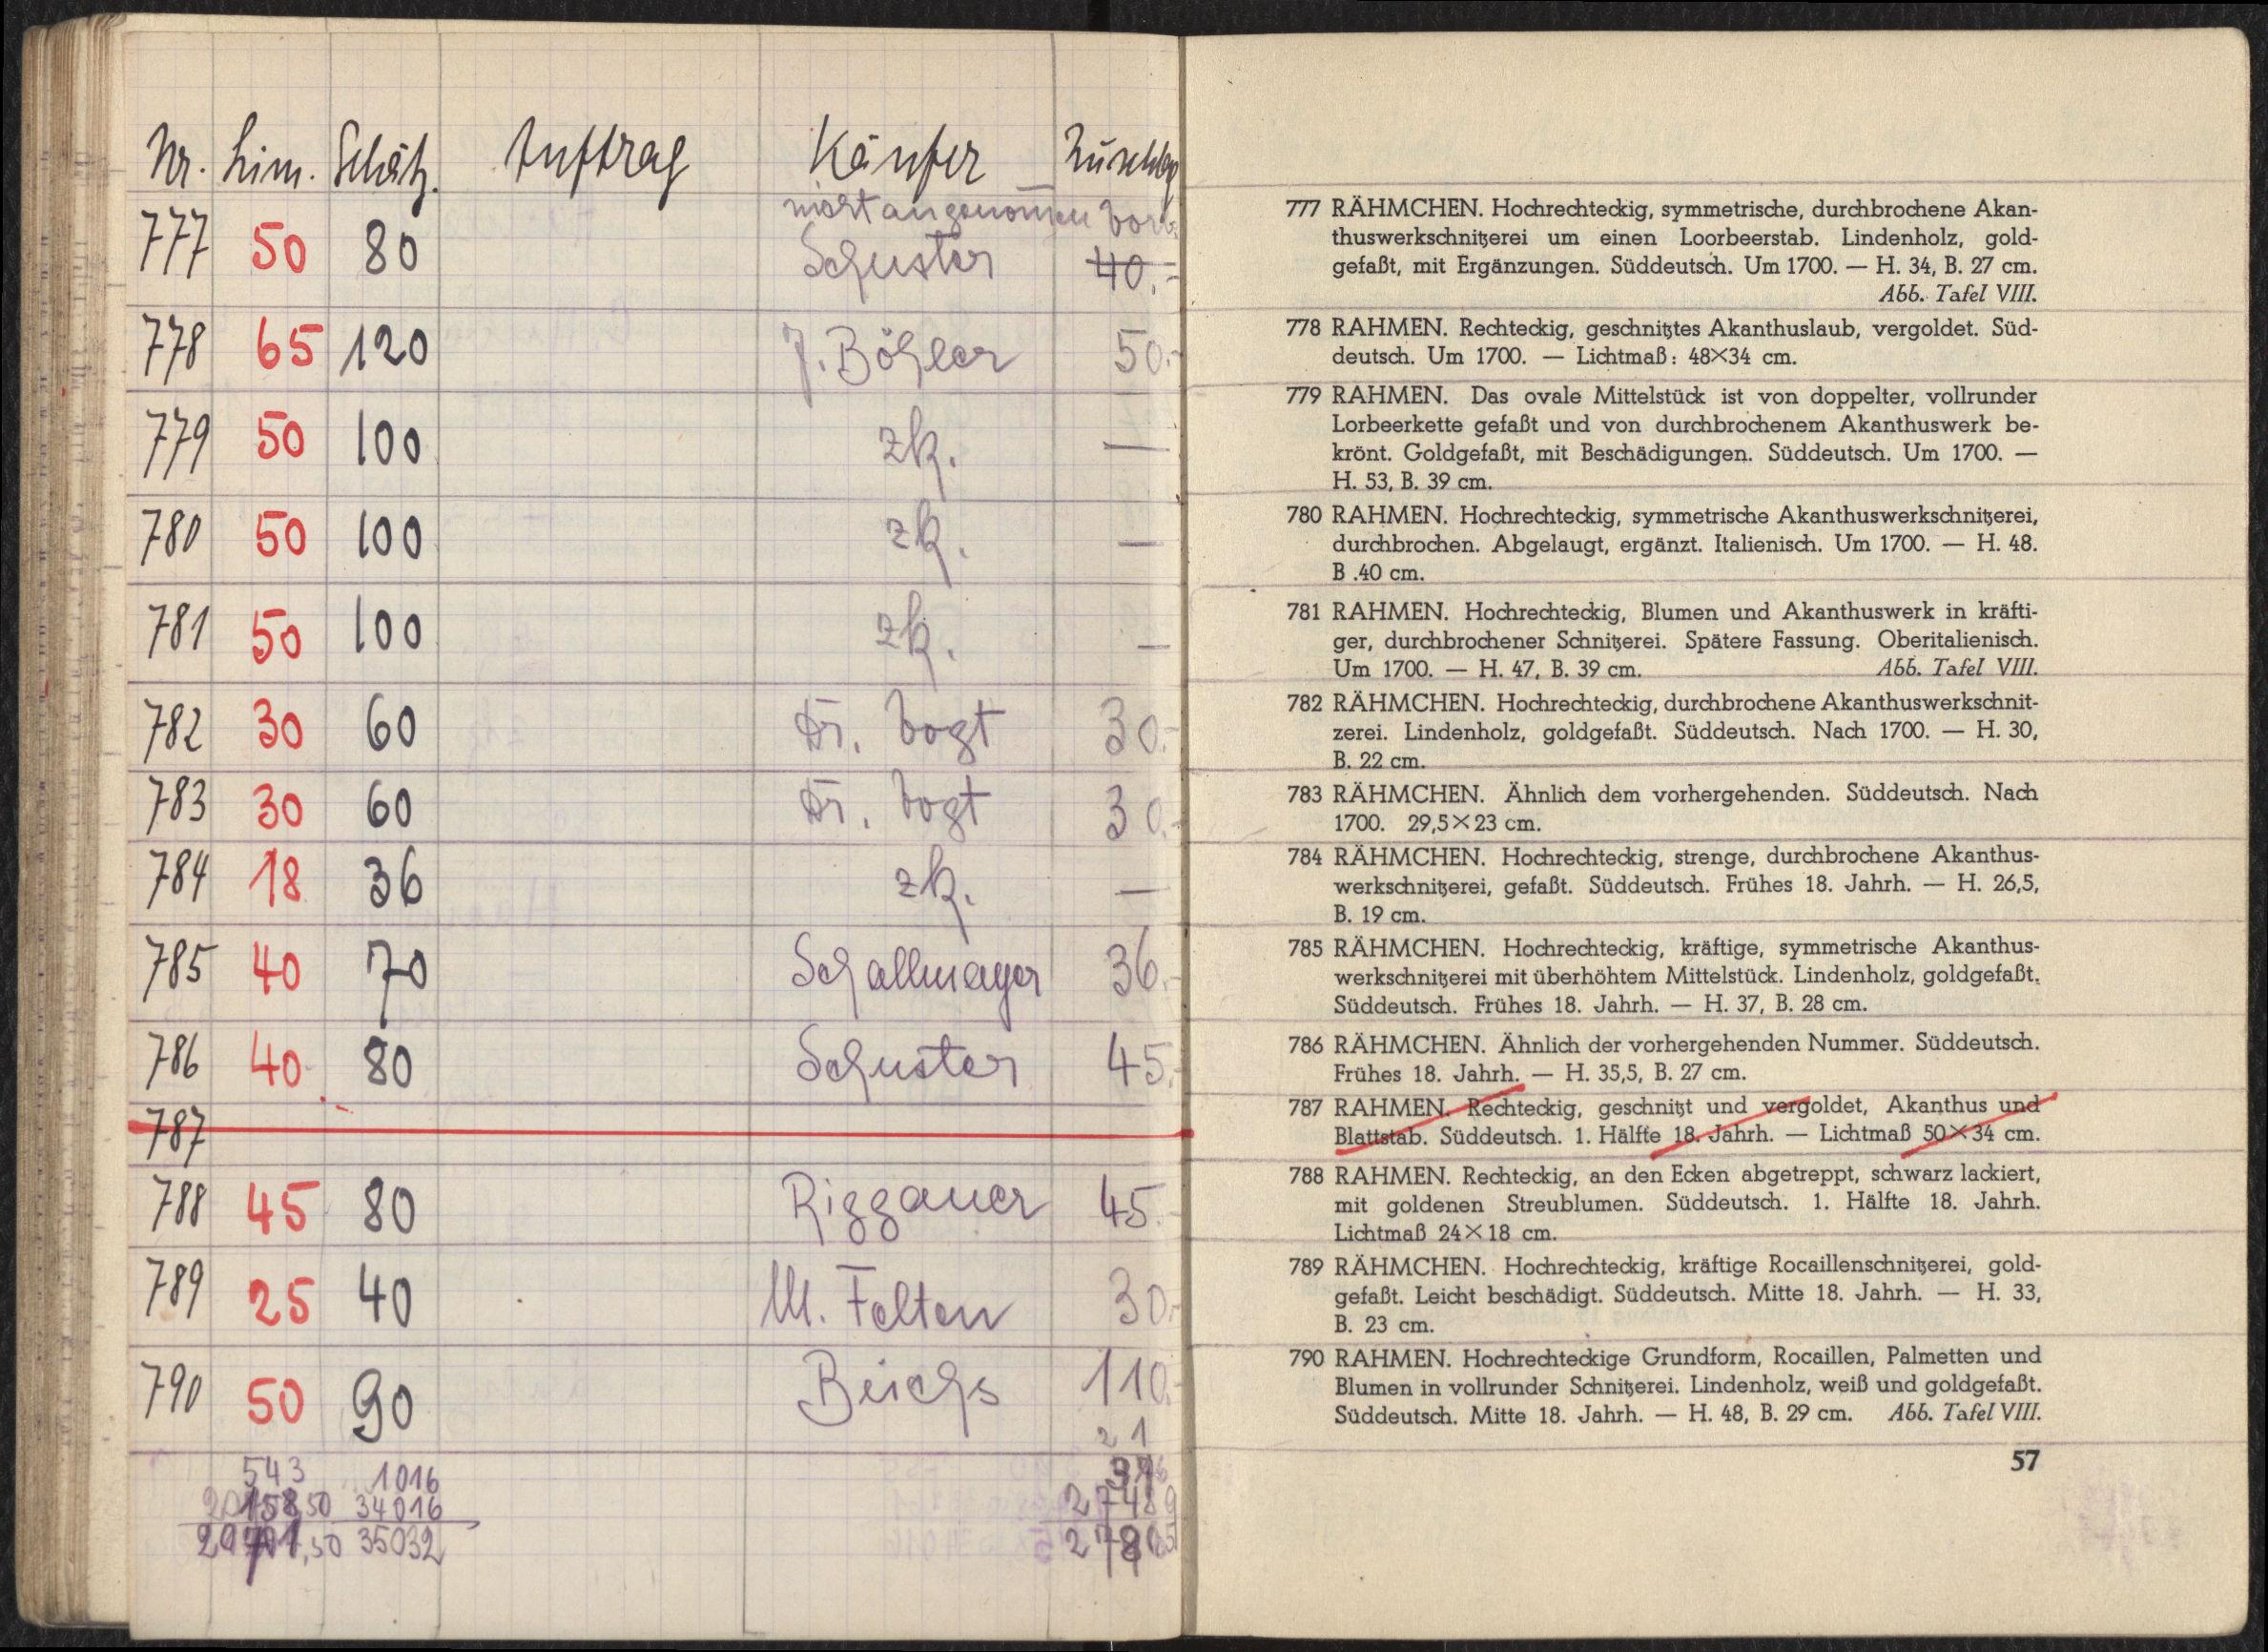 Nr. Lim. Schätz. Auftrag Käufer Zuschlag
nicht angenommen Vorb.
777 50 80 Schuster 40.-
778 65 120 J. Böhler 50.-
779 50 100 zk. —
780 50 100 zk. —
781 50 100 zk. —
782 30 60 Dr. Vogt 30.-
783 30 60 Dr. Vogt 30.-
784 18 36 zk. —
785 40 70 Schallmayer 36.-
786 40 80 Schuster 45.-
787
788 45 80 Riggauer 45.-
789 25 40 M. Felten 30.-
790 50 90 Beichs 110.-
21
543 1016
34016
35032
777 RÄHMCHEN. Hochrechteckig, symmetrische, durchbrochene Akan-
thuswerkschnitzerei um einen Loorbeerstab. Lindenholz, gold-
gefaßt, mit Ergänzungen. Süddeutsch. Um 1700. — H. 34, B. 27 cm.
Abb. Tafel VIII.
778 RAHMEN. Rechteckig, geschnitztes Akanthuslaub, vergoldet. Süd-
deutsch. Um 1700. — Lichtmaß: 48×34 cm.
779 RAHMEN. Das ovale Mittelstück ist von doppelter, vollrunder
Lorbeerkette gefaßt und von durchbrochenem Akanthuswerk be-
krönt. Goldgefaßt, mit Beschädigungen. Süddeutsch. Um 1700. —
H. 53, B. 39 cm.
780 RAHMEN. Hochrechteckig, symmetrische Akanthuswerkschnitzerei,
durchbrochen. Abgelaugt, ergänzt. Italienisch. Um 1700. — H. 48.
B .40 cm.
781 RAHMEN. Hochrechteckig, Blumen und Akanthuswerk in kräfti-
ger, durchbrochener Schnitzerei. Spätere Fassung. Oberitalienisch.
Um 1700. — H. 47, B. 39 cm. Abb. Tafel VIII.
782 RÄHMCHEN. Hochrechteckig, durchbrochene Akanthuswerkschnit-
zerei. Lindenholz, goldgefaßt. Süddeutsch. Nach 1700. — H. 30,
B. 22 cm.
783 RÄHMCHEN. Ähnlich dem vorhergehenden. Süddeutsch. Nach
1700. 29,5×23 cm.
784 RÄHMCHEN. Hochrechteckig, strenge, durchbrochene Akanthus-
werkschnitzerei, gefaßt. Süddeutsch. Frühes 18. Jahrh. — H. 26,5,
B. 19 cm.
785 RÄHMCHEN. Hochrechteckig, kräftige, symmetrische Akanthus-
werkschnitzerei mit überhöhtem Mittelstück. Lindenholz, goldgefaßt.
Süddeutsch. Frühes 18. Jahrh. — H. 37, B. 28 cm.
786 RÄHMCHEN. Ähnlich der vorhergehenden Nummer. Süddeutsch.
Frühes 18. Jahrh. — H. 35,5, B. 27 cm.
787 RAHMEN. Rechteckig, geschnitzt und vergoldet, Akanthus und
Blattstab. Süddeutsch. 1. Hälfte 18. Jahrh. — Lichtmaß 50×34 cm.
788 RAHMEN. Rechteckig, an den Ecken abgetreppt, schwarz lackiert,
mit goldenen Streublumen. Süddeutsch. 1. Hälfte 18. Jahrh.
Lichtmaß 24×18 cm.
789 RÄHMCHEN. Hochrechteckig, kräftige Rocaillenschnitzerei, gold-
gefaßt. Leicht beschädigt. Süddeutsch. Mitte 18. Jahrh. — H. 33,
B. 23 cm.
790 RAHMEN. Hochrechteckige Grundform, Rocaillen, Palmetten und
Blumen in vollrunder Schnitzerei. Lindenholz, weiß und goldgefaßt.
Süddeutsch. Mitte 18. Jahrh. — H. 48, B. 29 cm. Abb. Tafel VIII.
57